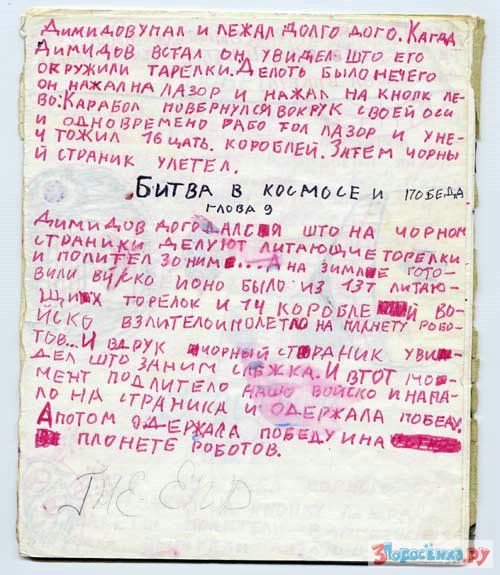 ДИМИДОВ УПАЛ И ЛЕЖАЛ ДОЛГО ДОГО. КАГДА
ДИМИДОВ ВСТАЛ ОН УВИДЕЛ ШТО ЕГО
ОКРУЖИЛИ ТАРЕЛКИ. ДЕЛОТЬ БЫЛО НЕЧЕГО
ОН НАЖАЛ НА ЛАЗОР И НАЖАЛ НА КНОПК ЛЕ-
ВО. КАРАБОЛ ПОВЕРНУЛСЯ ВОКРУК СВОЕЙ ОСИ
И ОДНОВРЕМЕНО РАБОТОЛ ЛАЗОР И УНЕ-
ЧТОЖИЛ 16ЦАТЬ. КОРОБЛЕЙ. ЗАТЕМ ЧОРНЫ
Й СТРАНИК УЛЕТЕЛ.
БИТВА В КОСМОСЕ И ПОБЕДА
ГЛОВА 9
ДИМИДОВ ДОГОДАЛСЯ ШТО НА ЧОРНОМ
СТРАНИКИ ДЕЛУЮТ ЛИТАЮЩИЕ ТОРЕЛКИ
И ПОЛИТЕЛ ЗО НИМ.... А НА ЗИМЛЕ ГОТО-
ВИЛИ ВИСКО ИОНО БЫЛО ИЗ 13Т ЛИТАЮ-
ЩИХ ТОРЕЛОК И 14 КОРОБЛЕЙ ВО-
ЙСКО ВЗЛИТЕЛО И ПОЛЕТЛО НА ПЛАНЕТУ РОБО-
ТОВ... И ВДРУК ЧОРНЫЙ СТРАНИК УВИ-
ДЕЛ ШТО ЗАНИМ СЛЕЖКА. И ВТОТ МО-
МЕНТ ПОДЛИТЕЛО НАШО ВОЙСКО И НАПА-
ЛО НА СТРАНИКА И ОДЕРЖАЛА ПОБЕДУ.
А ПОТОМ ОДЕРЖАЛА ПОБЕДУ И НА
ПЛОНЕТЕ РОБОТОВ.
THE END
3Поросёнка.ру